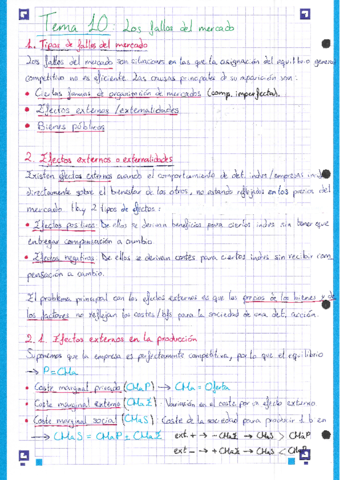 Tema 10: Los fallos del mercado
1. Tipos de fallos del mercado
Los fallos del mercado son situaciones en las que la asignación del equilibrio general
competitivo no es eficiente. Las causas principales de su aparición son:
• Ciertas formas de organización de mercados (comp. imperfecta).
• Efectos externos / externalidades
• Bienes públicos
2. Efectos externos o externalidades
Existen efectos externos cuando el comportamiento de det. indivs/empresas
directamente sobre el bienestar de los otros, no estando reflejados en los precios del
mercado. Hay 2 tipos de efectos:
• Efectos positivos: De ellos se derivan beneficios para ciertos indivs sin tener que
entregar compensación a cambio
• Efectos negativos: De ellos se derivan costes para ciertos indivs sin recibir com
pensación a cambio.
El problema principal con los efectos externos es que los precios de los bienes
los factores no reflejan los costes/bfs para la sociedad de una det. acción.
2.1. Efectos externos en la producción
Suponemos que la empresa es perfectamente competitiva, por lo que el equilibrio
→ P=CMa
• Coste marginal privado (CMaP) → CMa = Oferta
• Coste marginal externo (CMaE): Variación en el coste por un efecto externo
• Coste marginal social (CMaS): Coste de la sociedad para producir 1 b en
→ CMaS = CMaP ± CMaE ext + → -CMaE → CMaS > CMaP
ext - → +CMaE → CMaS < CMaP